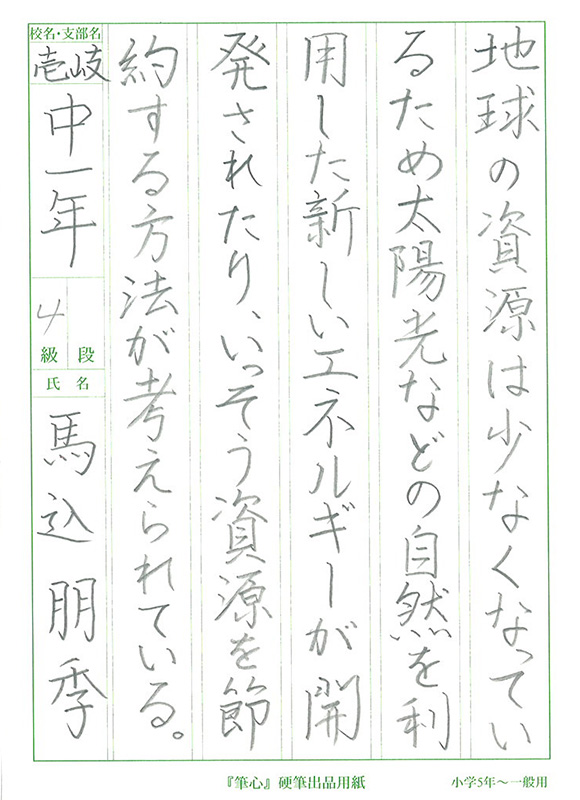 地球の資源は少なくなってい
るため太陽光などの自然を利
用した新しいエネルギーが開
発されたり、いっそう資源を節
約する方法が考えられている。
校名・支部名
壱岐
中一年
4
級 段
氏名
馬込 朋季
『筆心』硬筆出品用紙
小学5年〜一般用